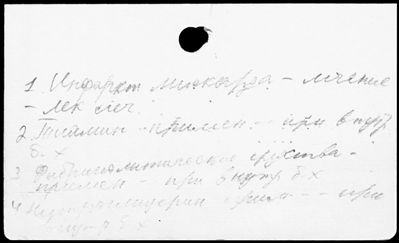 1. Инфаркт миокарда - лечение
- лек. леч.
2. Тиамин - примен. - при внутр
б-х
3 Фибринолитические средства -
примен - при внутр б-х
4 примен -- при
внутр б-х